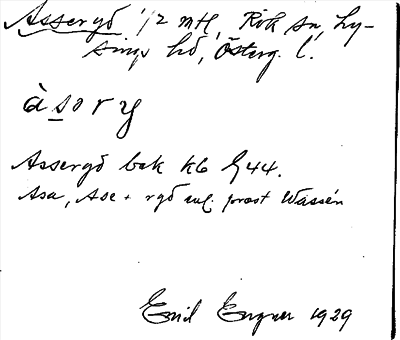 Assergd 1/2 mtl, Rök sn, Ly-
sings hd, Österg. l.
àsory
Assergd bok KB 1544.
Asa, Ase + rgd enl. prost Wassén
Emil Enguer 1929